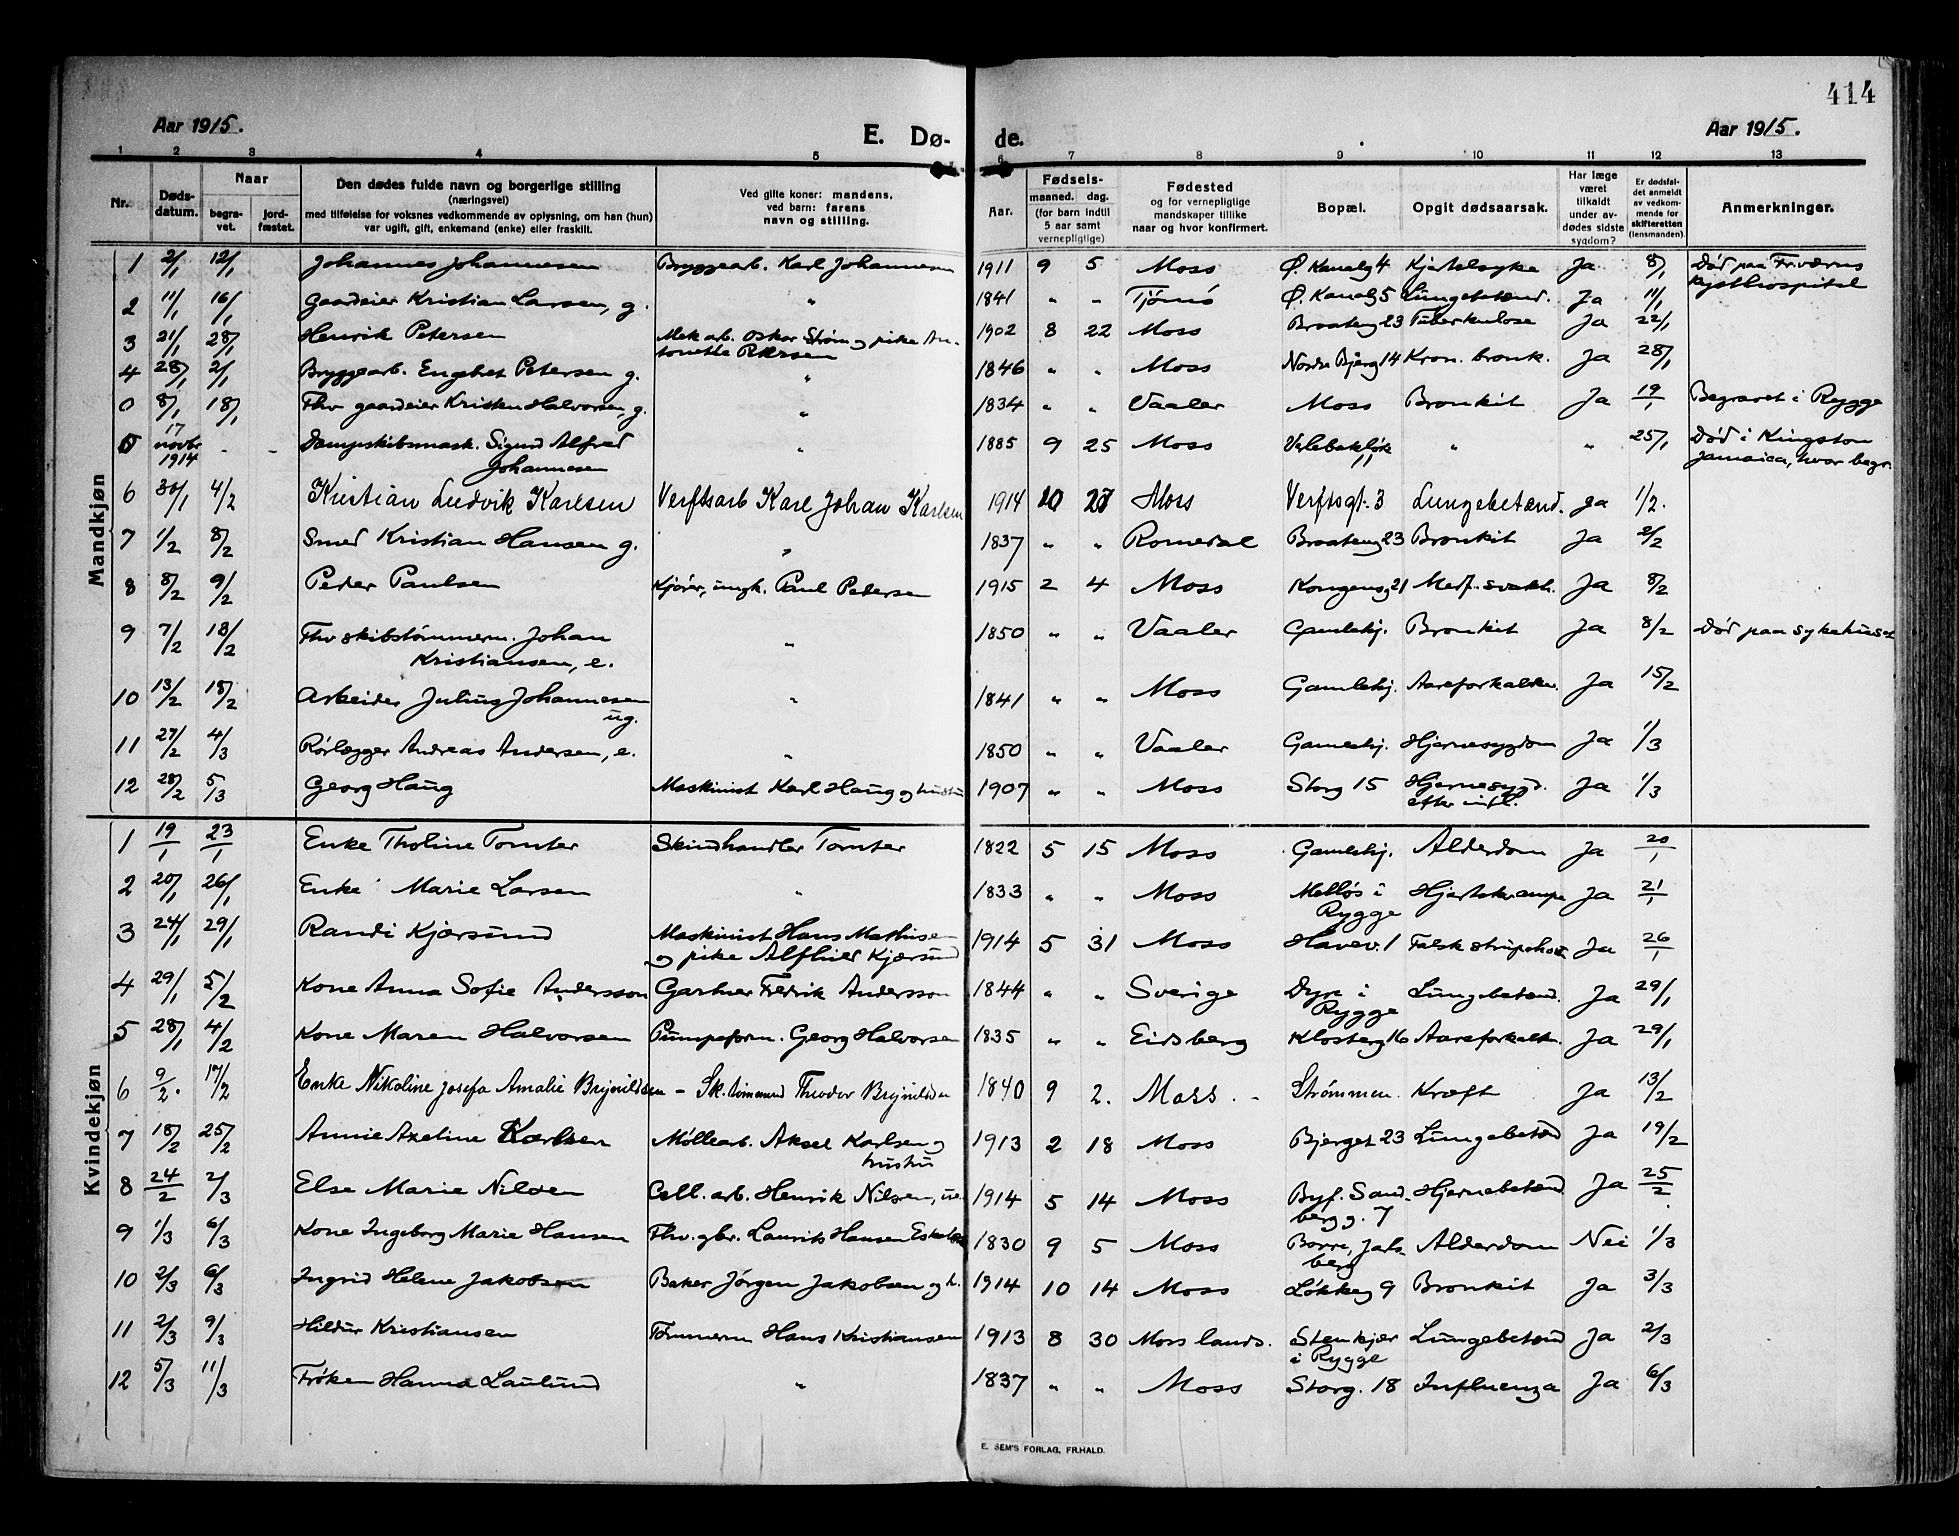 414
Aar 1915.
E. Dø- de.
Aar 1915.
1 2 3 4 5 6 7 8 9 10 11 12 13
Nr. Døds-datum. Naar begra-vet. jord-fæstet. Den dødes fulde navn og borgerlige stilling (næringsvei) med tilføielse for voksnes vedkommende av oplysning, om han (hun) var ugift, gift, enkemand (enke) eller fraskilt. Ved gifte koner: mandens, ved barn: farens navn og stilling. Aar. Fødsels- maaned. dag. (for barn indtil 5 aar samt vernepligtige) Fødested og for vernepligtige mandskaper tillike naar og hvor konfirmert. Bopæl. Opgit dødsaarsak. Har læge været tilkaldt under av-dødes sidste sygdom? Er dødsfal-det anmeldt av vedkom-mende for skifteretten (lensmanden). Anmerkninger.
Mandkjøn
1 2/1 12/1 Johannes Johannesen Bryggearb. Karl Johannesen 1911 9 5 Moss Ø. Kanalg 4 Kjertelsyke Ja 8/1 Død paa Fredriksværns
kysthospital
2 11/1 16/1 Gaardeier Kristian Larsen, g. " 1841 " " Tjømø Ø. Kanalg 5 Lungebetænd. Ja 11/1
3 21/1 28/1 Henrik Petersen Mek arb. Oskar Strøm og pike An-
tonette Petersen 1902 8 22 Moss Braateng 23 Tuberkulose Ja 22/1
4 28/1 2/1 Bryggearb. Engebret Petersen g. " 1846 " " Moss Nordre Bjerg 14 Kron. bronk. Ja 28/1
0 8/1 18/1 Fhv gaardeier Kristen Halvorsen, g. " 1834 " " Vaaler Moss Bronkit Ja 19/1 Begravet i Rygge
5 17 novbr 1914 - - Dampskibsmask. Sigurd Alfred
Johannesen " 1885 9 25 Moss 11 " " 25/1 Død i Kingston
Jamaica, hvor begr.
6 30/1 4/2 Kristian Ludvik Karlsen Verftsarb Karl Johan Karlsen 1914 10 27 Moss Verftsgt. 3 Lungebetænd. ja 1/2.
7 1/2 8/2 Smed Kristian Hansen g. " 1837 " " Romedal Braateng 23 Bronkit Ja 2/2
8 8/2 9/2 Peder Paulsen Kjører, ungk. Paul Petersen 1915 2 4 Moss Kongensg 21 Medf. svakh. Ja 8/2
9 7/2 13/2 Fhv skibstømmerm. Johan
Kristiansen, e. " 1850 " " Vaaler Gamlehj. Bronkit Ja 8/2 Død paa sykehuset
10 13/2 18/2 Arbeider Julius Johannesen
ug. " 1841 " " Moss Gamlehj. Aareforkalkn. Ja 15/2
11 27/2 4/3 Rørlægger Andreas Andersen, e. " 1850 " " Vaaler Gamlehj. Hjernesygdom Ja 1/3
12 28/2 5/3 Georg Haug Maskinist Karl Haug og hustru 1907 " " Moss Storg 15 Hjernesygd.
efter infl. Ja 1/3
Kvindekjøn
1 19/1 23/1 Enke Tholine Tomter Skindhandler Tomter 1822 5 15 Moss Gamlehj. Alderdom Ja 20/1
2 20/1 26/1 Enke Marie Larsen " 1833 " " Moss Melløs i
Rygge Hjertekrampe Ja 21/1
3 24/1 29/1 Randi Kjærsund Maskinist Hans Mathisen
og pike Alfhild Kjærsund 1914 5 31 Moss Havev. 1 Falsk strupehoste Ja 26/1
4 29/1 5/2 Kone Anna Sofie Andersson Gartner Fredrik Andersson 1844 " " Sverige Dyre i
Rygge Lungebetænd. Ja 29/1
5 28/1 4/2 Kone Maren Halvorsen Pumpeform. Georg Halvorsen 1835 " " Eidsberg Klosterg 16 Aareforkalkn. Ja 29/1
6 9/2. 17/2 Enke Nikoline Josefa Amalie Brynildsen - Sk. tømmermd Theodor Brynildsen 1840 9 2. Moss. - Strømmen. Kræft Ja 13/2
7 18/2 25/2 Annie Axeline Karlsen Møllearb. Aksel Karlsen og
hustru 1913 2 18 Moss Bjerget 23 Lungebetænd Ja 19/2
8 24/2 2/3 Else Marie Nilsen Cell. arb. Henrik Nilsen, 1914 5 14 Moss Byf. Sand-
berg g. 7 Hjernebetænd Ja 25/2
9 1/3 6/3 Kone Ingeborg Marie Hansen Fhv. gbr. Laurits Hansen 1830 9 5 Moss Borre, Jars-
berg Alderdom Nei 1/3
10 2/3 6/3 Ingrid Helene Jakobsen Baker Jørgen Jakobsen og h. 1914 10 14 Moss Løkkeg 9 Bronkit Ja 3/3
11 2/3 9/3 Hildur Kristiansen Tømmerm Hans Kristiansen 1913 8 30 Moss lands. Stenkjær
i Rygge Lungebetænd Ja 2/3
12 5/3 11/3 Frøken Hanna Laulund " 1837 " " Moss Storg. 18 Influenza Ja 6/3
E. SEM'S FORLAG, FR.HALD.